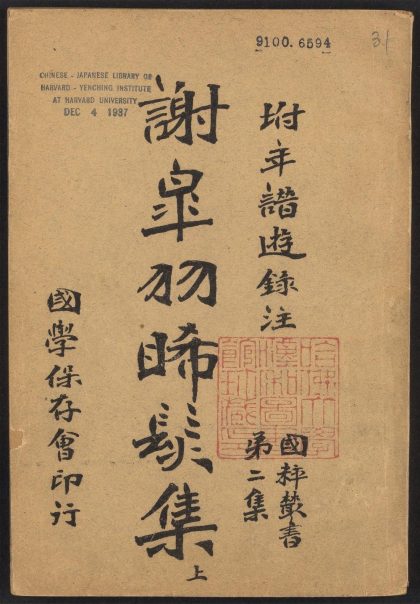 9100.6594
31
CHINESE - JAPANESE LIBRARY OF
HARVARD - YENCHING INSTITUTE
AT HARVARD UNIVERSITY
DEC 4 1937
坿年譜遊錄注
國粹叢書
第二集
謝皐羽晞髮集
上
國學保存會印行